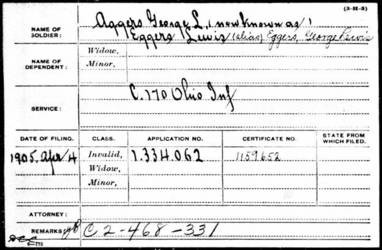 (3-H-3)
NAME OF SOLDIER: Aggers George L, (now known as)
Eggers Lewis (alias) Eggers, George Lewis
NAME OF DEPENDENT: Widow,
Minor,
SERVICE: C. 170 Ohio Inf
DATE OF FILING. CLASS. APPLICATION NO. CERTIFICATE NO. STATE FROM WHICH FILED.
1905. Apr 4 Invalid, 1.334.062 1159652
Widow,
Minor,
ATTORNEY:
REMARKS: C 2-468-331